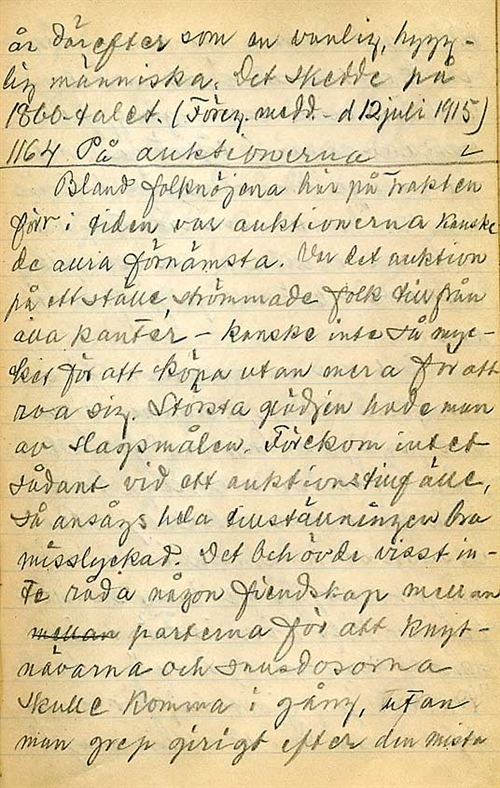 år därefter som en vanlig, hygg-
lig människa. Det skedde på
1860-talet. (Föreg. medd. - d 12 juli 1915)
1164 På auktionerna
Bland folknöjena här på trakten
förr i tiden var auktionerna kanske
de allra förnämsta. Var det auktion
på ett ställe, strömmade folk till från
alla kanter - kanske inte så myc-
ket för att köpa utan mera för att
roa sig. Största glädjen hade man
av slagsmålen. Förekom intet
sådant vid ett auktionstillfälle,
så ansågs hela tillställningen bra
misslyckad. Det behövde visst in-
te råda någon fiendskap mellan
mellan parterna för att knyt-
nävarna och snusdosorna
skulle komma i gång, utan
man grep girigt efter den minsta